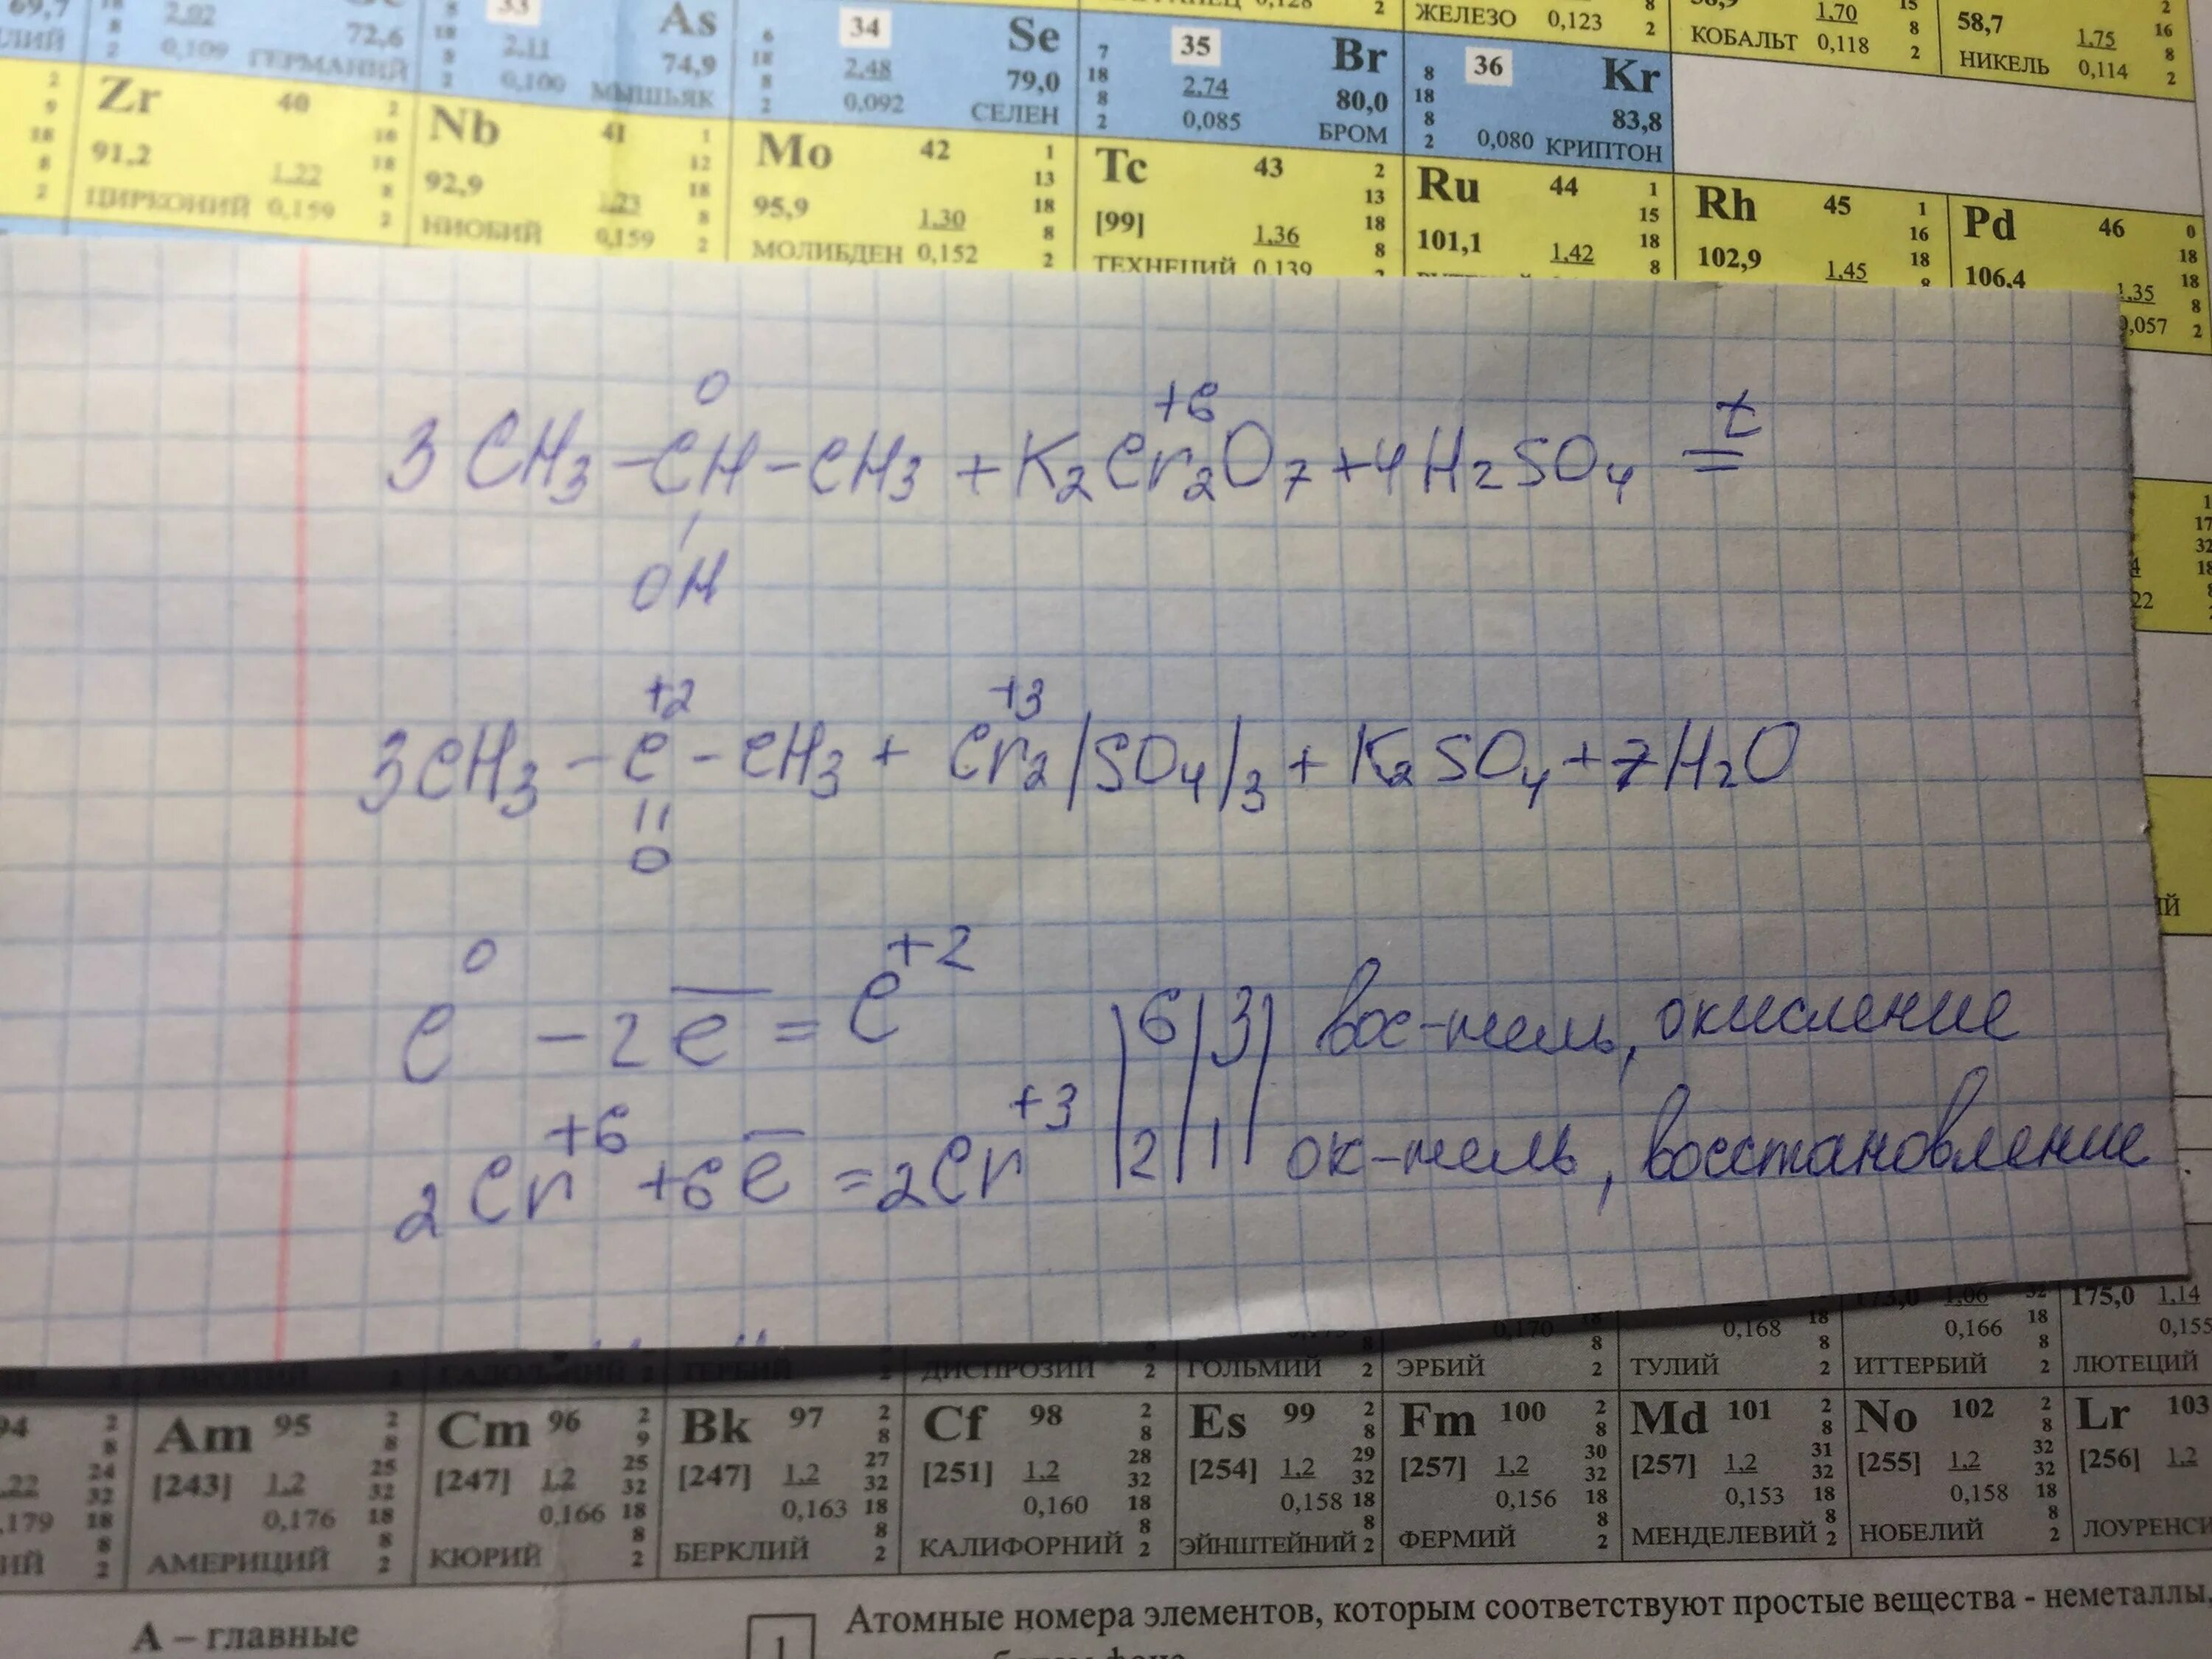 69,7 2,02 72,6 33 As 34 Se 35 Br 36 Kr
ЛИЙ 0,109 ГЕРМАНИЙ 2,11 0,100 74,9 МЫШЬЯК 2,48 0,092 79,0 СЕЛЕН 2,74 0,085 80,0 БРОМ 0,080 83,8 КРИПТОН
ЖЕЛЕЗО 0,123 1,70 КОБАЛЬТ 0,118 58,7 1,75 НИКЕЛЬ 0,114
Zr 40 Nb 41 Mo 42 Tc 43 Ru 44 Rh 45 Pd 46
91,2 1,22 92,9 1,23 95,9 1,30 [99] 1,36 101,1 1,42 102,9 1,45 106,4 1,35
ЦИРКОНИЙ 0,159 НИОБИЙ 0,159 МОЛИБДЕН 0,152 ТЕХНЕЦИЙ 0,139 0,057
0 +6 t
3 CH3 – CH – CH3 + K2Cr2O7 + 4H2SO4 =
OH
+2 +3
3CH3 – C – CH3 + Cr2(SO4)3 + K2SO4 + 7H2O
||
O
C⁰ – 2e = C⁺² |6|3| вос-тель, окисление
2Cr⁺⁶ + 6e = 2Cr⁺³ |2|1| ок-тель, восстановление
175,0 1,06 1,14
0,170 0,168 0,166 0,155
ТЕРБИЙ ДИСПРОЗИЙ ГОЛЬМИЙ ЭРБИЙ ТУЛИЙ ИТТЕРБИЙ ЛЮТЕЦИЙ
94 Am 95 Cm 96 Bk 97 Cf 98 Es 99 Fm 100 Md 101 No 102 Lr 103
[243] 1,2 [247] 1,2 [247] 1,2 [251] 1,2 [254] 1,2 [257] 1,2 [257] 1,2 [255] 1,2 [256] 1,2
0,176 0,166 0,163 0,160 0,158 0,156 0,153 0,158
АМЕРИЦИЙ КЮРИЙ БЕРКЛИЙ КАЛИФОРНИЙ ЭЙНШТЕЙНИЙ ФЕРМИЙ МЕНДЕЛЕВИЙ НОБЕЛИЙ ЛОУРЕНСИ
А – главные
1 Атомные номера элементов, которым соответствуют простые вещества - неметаллы,